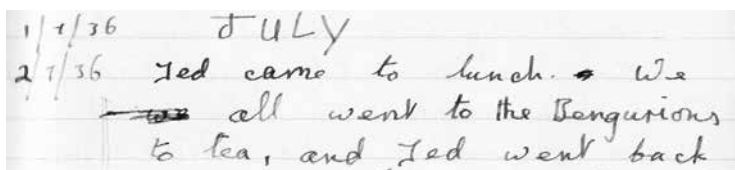 1/7/36 JULY
2/7/36 Ted came to lunch. We
all went to the Bengurions
to tea, and Ted went back